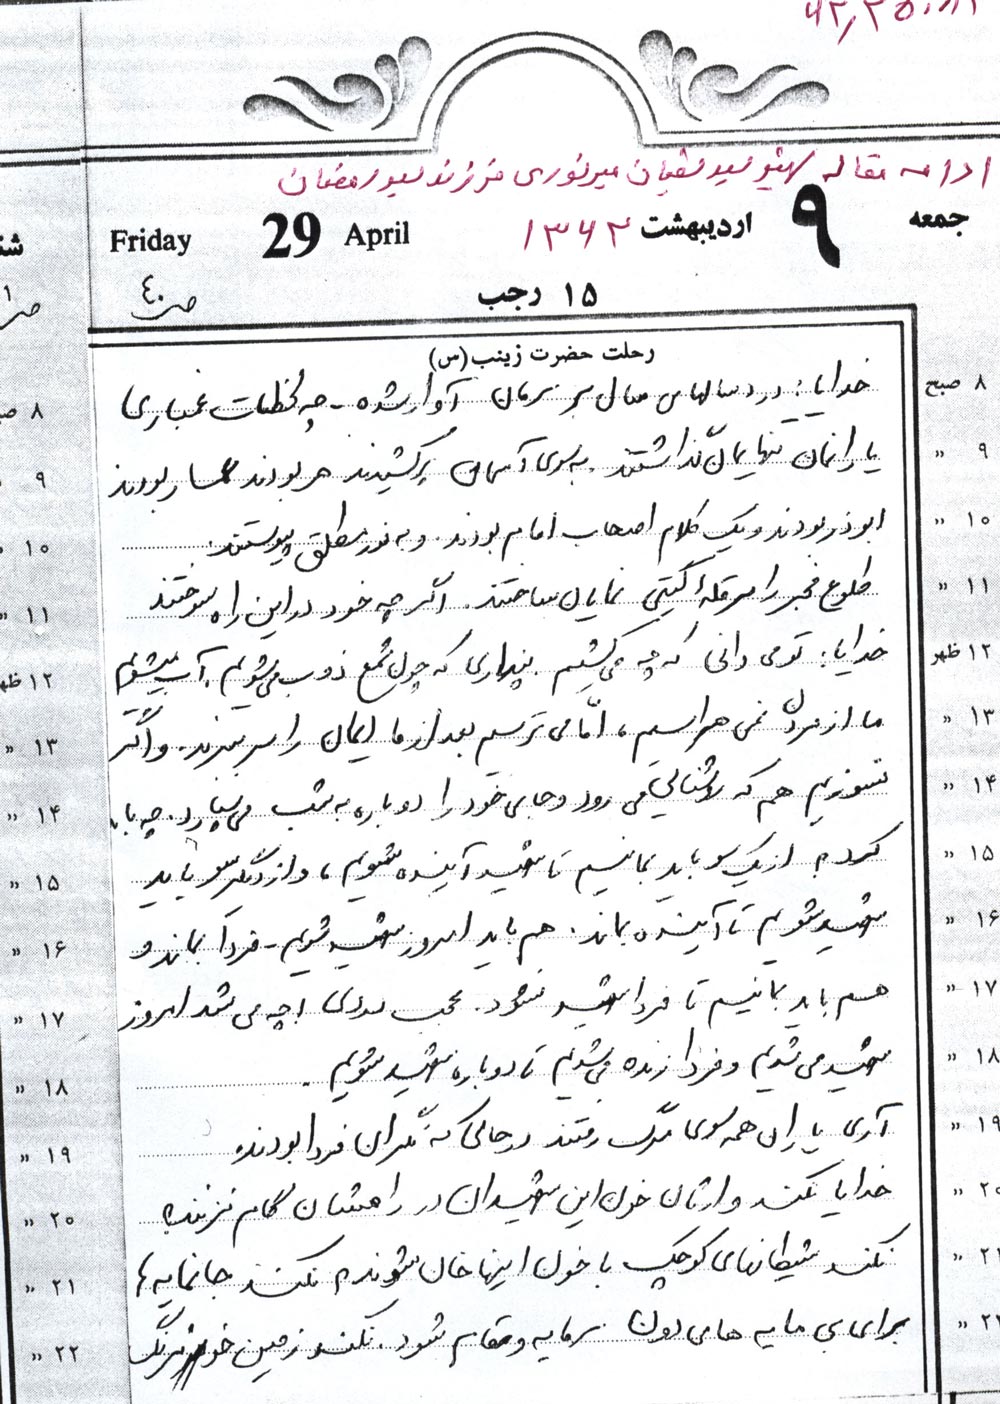 ادامه مقاله شهید سید سفیان میرنوری فرزند سید رمضان
جمعه ۹ اردیبهشت ۱۳۶۲ April 29 Friday
۱۵ رجب
ص ۴۰
رحلت حضرت زینب (س)
۸ صبح خدایا: درد سالهای سال بر سرمان آوار شده - چه لحظات غمباری
۹ یارانمان تنهایمان گذاشتند. به سوی آسمان پر کشیدند بودند بودند
۱۰ ابوذر بودند و یک کلام اصحاب امام بودند. و به نور مطلق پیوستند.
۱۱ طلوع فجر را بر قله گیتی نمایان ساختند. اگر چه خود در این راه سوختند
۱۲ ظهر خدایا: تو می دانی که چه می کشیم. پنداری که چون شمع ذوب می شویم، آب میشویم
۱۳ ما از مردن نمی هراسیم، امّا می ترسیم بعد از ما ایمان را سر ببرند. و اگر
۱۴ نسوزیم هم که روشنائی می رود و جای خود را دوباره به شب می سپارد. چه باید
۱۵ کرد، از یک سو باید بمانیم تا شهید آینده شویم، و از دیگر سو باید
۱۶ شهید شویم تا آینده بماند. هم باید امروز شهید شویم - فردا بماند و
۱۷ هم باید بمانیم تا فردا شهید نشود. عجب دردی! چه می شد امروز
۱۸ شهید می شدیم و فردا زنده می شدیم تا دوباره شهید شویم.
۱۹ آری یاران همه سوی مرگ رفتند در حالی که نگران فردا بودند
۲۰ خدایا نکند وارثان خون این شهیدان در راهشان گام نزنند؟
۲۱ نکند شیطانهای کوچک با خون اینها خان شوند، نکند جانمایه ها
۲۲ برای بی مایه های دون سرمایه و مقام شود. نکند زمین خونرنگ